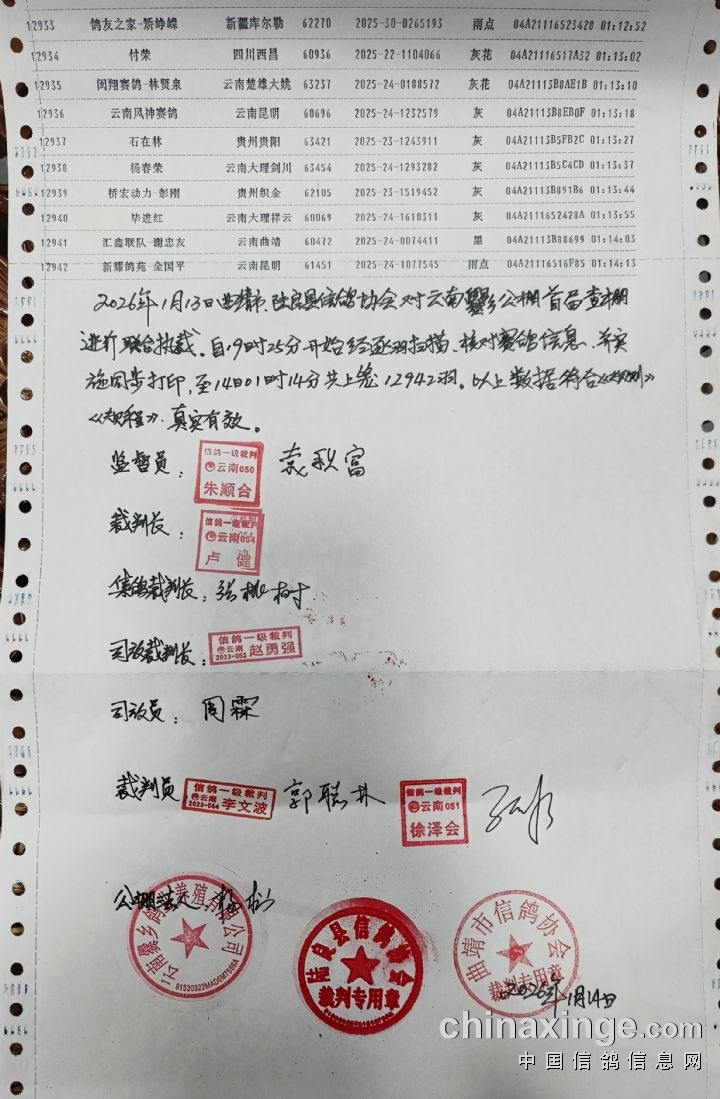 12933 鸽友之家-矫峥嵘 新疆库尔勒 62270 2025-30-0265193 雨点 04A21116523428 01:12:52
12934 付荣 四川西昌 60936 2025-22-1104066 灰花 04A21116517A32 01:13:02
12935 闽翔赛鸽-林贤泉 云南楚雄大姚 63237 2025-24-0188572 灰花 04A21113B8AE1B 01:13:10
12936 云南风神赛鸽 云南昆明 60696 2025-24-1232579 灰 04A21113B8EB0F 01:13:18
12937 石在林 贵州贵阳 63421 2025-23-1243911 灰 04A21113B5FB2C 01:13:27
12938 杨春荣 云南大理剑川 63454 2025-24-1293282 灰 04A21113B5C4CD 01:13:37
12939 桥宏动力-彭刚 贵州织金 62105 2025-23-1519452 灰 04A21113B891B6 01:13:44
12940 毕进红 云南大理祥云 60069 2025-24-1610311 灰 04A2111652428A 01:13:55
12941 汇鑫联队-谢忠友 云南曲靖 60472 2025-24-0074411 黑 04A21113B88699 01:14:03
12942 新耀鸽苑-金国平 云南昆明 61451 2025-24-1077545 雨点 04A21116516F85 01:14:13
2026年1月13日曲靖市、陆良县信鸽协会对云南爨乡公棚首届查棚
进行联合执裁。自19时25分开始经逐羽扫描、核对赛鸽信息、并实
施同步打印，至14日01时14分共上笼12942羽。以上数据符合《规则》
《规程》.真实有效。
监督员： 信鸽一级裁判 云南050 朱顺合 袁秋富
裁判长： 信鸽一级裁判 云南054 卢健
集鸽裁判长：张桃树
司放裁判长： 信鸽一级裁判 云南 2023-052 赵勇强
司放员：周霖
裁判员 信鸽一级裁判 云南 2023-064 李文波 郭聪林 信鸽一级裁判 云南051 徐泽会
公棚
云南爨乡鸽业养殖有限公司
陆良县信鸽协会
裁判专用章
曲靖市信鸽协会
裁判专用章
2026年1月14日
chinaxinge.com
中国信鸽信息网